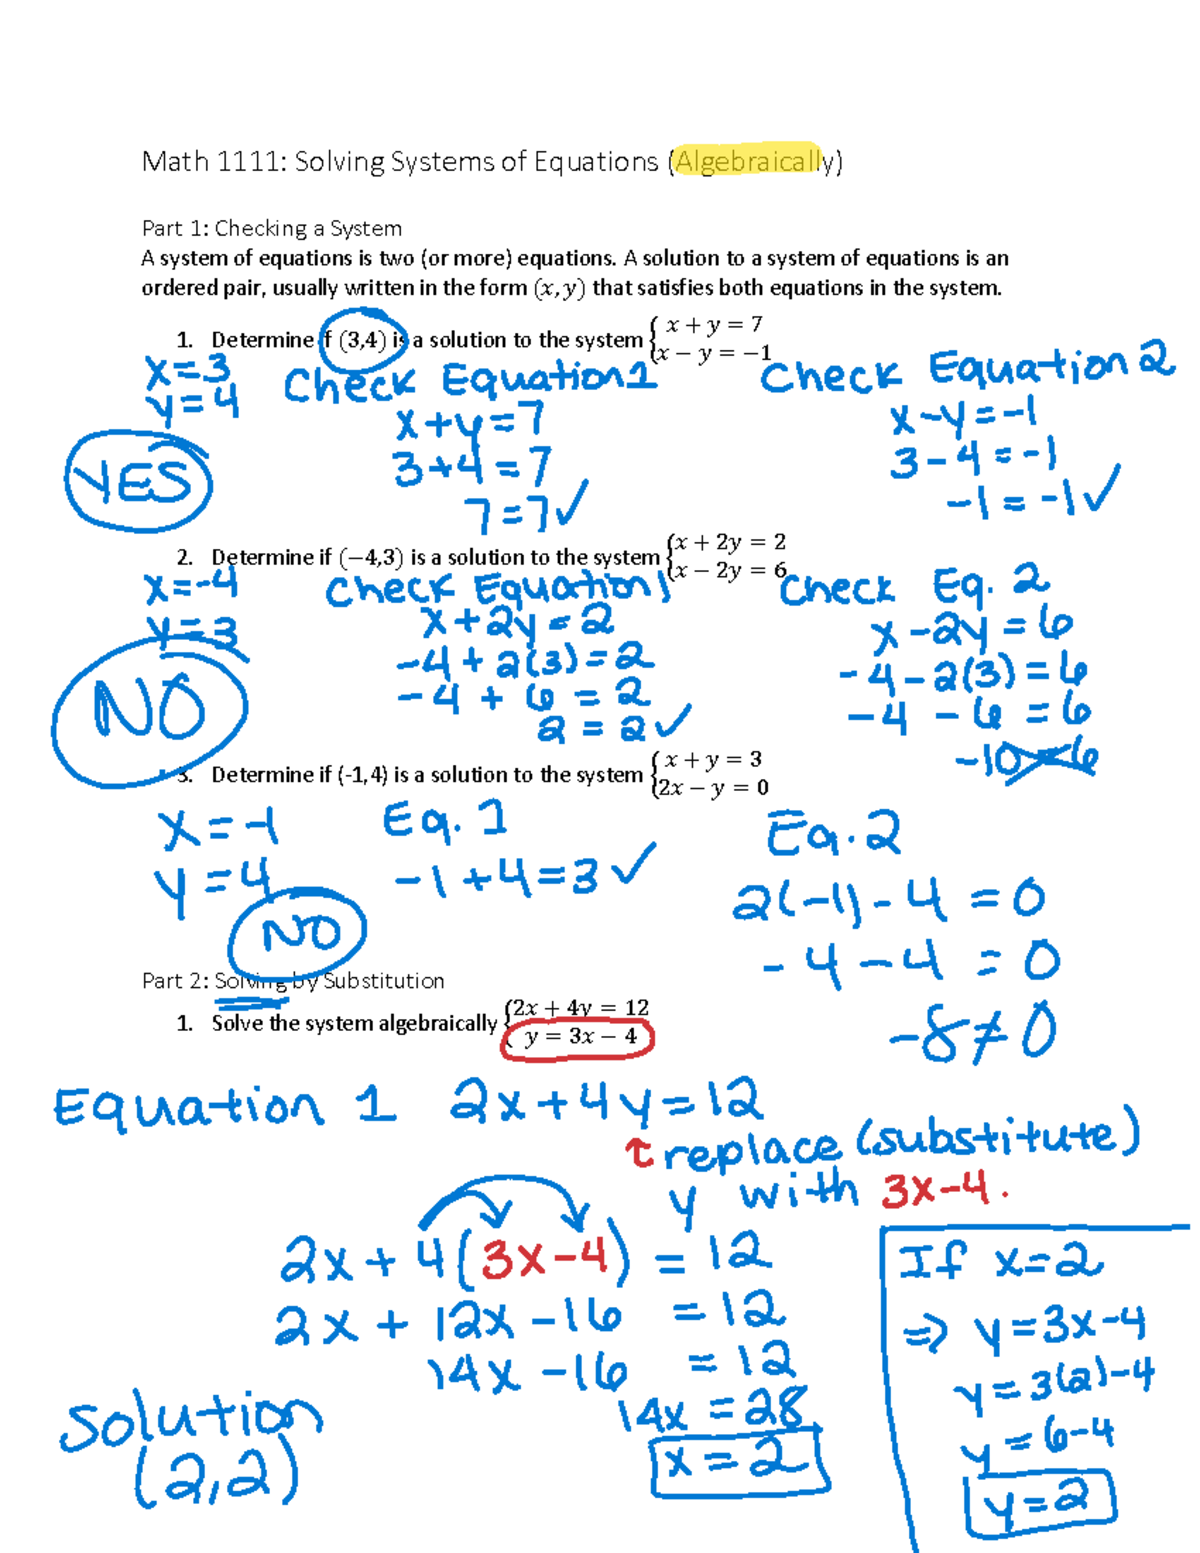 Math 1111: Solving Systems of Equations (Algebraically)
Part 1: Checking a System
A system of equations is two (or more) equations. A solution to a system of equations is an
ordered pair, usually written in the form (x, y) that satisfies both equations in the system.
1. Determine if (3,4) is a solution to the system { x + y = 7
x − y = −1
x=3
y=4
Check Equation 1
x+y=7
3+4=7
7=7✓
Check Equation 2
x-y=-1
3-4=-1
-1=-1✓
YES
2. Determine if (−4,3) is a solution to the system { x + 2y = 2
x − 2y = 6
x=-4
y=3
Check Equation 1
x+2y=2
-4+2(3)=2
-4+6=2
2=2✓
Check Eq. 2
x-2y=6
-4-2(3)=6
-4-6=6
-10=6
NO
3. Determine if (-1, 4) is a solution to the system { x + y = 3
2x − y = 0
x=-1
y=4
Eq. 1
-1+4=3✓
Eq. 2
2(-1)-4=0
-4-4=0
-8≠0
NO
Part 2: Solving by Substitution
1. Solve the system algebraically { 2x + 4y = 12
y = 3x − 4
Equation 1 2x+4y=12
↑ replace (substitute)
y with 3x-4.
2x+4(3x-4)=12
2x+12x-16=12
14x-16=12
14x=28
x=2
If x=2
⇒ y=3x-4
y=3(2)-4
y=6-4
y=2
Solution
(2,2)